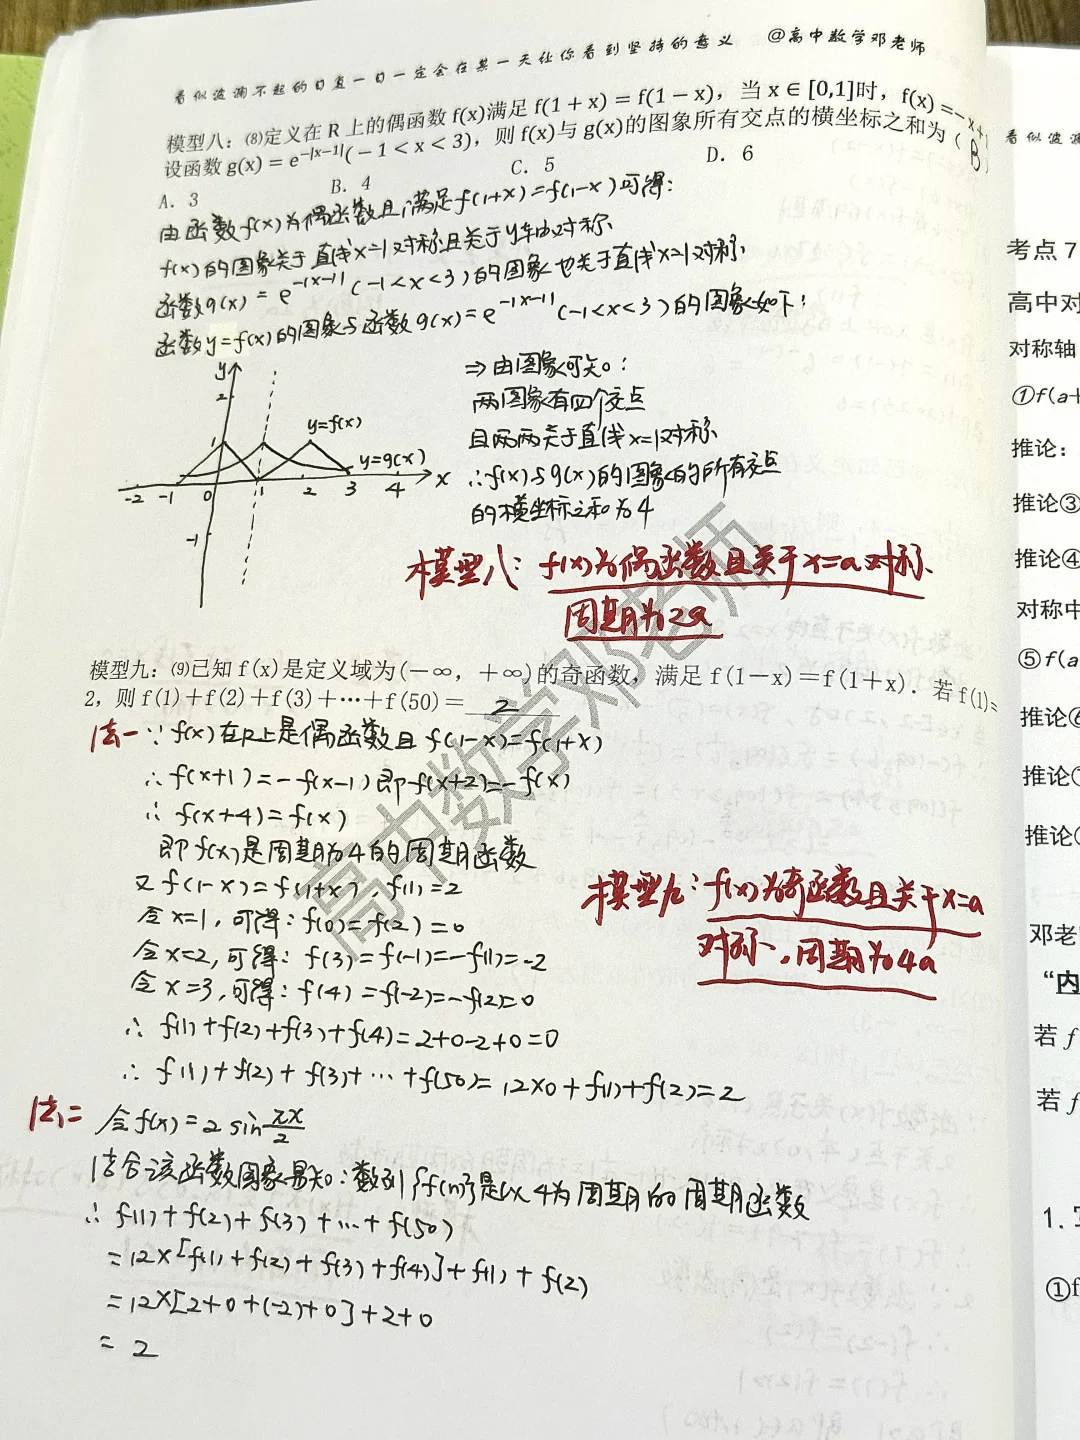 看似波澜不起的日复一日一定会在某一天让你看到坚持的意义 @高中数学邓老师
模型八：⑻定义在 R 上的偶函数 f(x)满足 f(1＋x)＝f(1－x)，当 x∈[0,1]时，f(x)＝－x＋1
设函数 g(x)＝e^{－|x－1|}(－1＜x＜3)，则 f(x)与 g(x)的图象所有交点的横坐标之和为（ B
A．3 B．4 C．5 D．6
由函数f(x)为偶函数且满足f(1+x)=f(1-x)可得:
f(x)的图象关于直线x=1对称且关于y轴对称
函数g(x)=e^{-|x-1|}(-1<x<3)的图象也关于直线x=1对称
函数y=f(x)的图象与函数g(x)=e^{-|x-1|}(-1<x<3)的图象如下:
y
2
1
y=f(x)
y=g(x)
x
-2 -1 0 1 2 3 4
-1
⇒由图象可知:
两图象有四个交点
且两两关于直线x=1对称
∴f(x)与g(x)的图象的所有交点
的横坐标之和为4
模型八: f(x)为偶函数且关于x=a对称
周期为2a
模型九：⑼已知 f(x)是定义域为(－∞，＋∞)的奇函数，满足 f(1－x)＝f(1＋x)．若 f(1)＝
2，则 f(1)＋f(2)＋f(3)＋…＋f(50)＝ 2
法一 ∵f(x)在R上是偶函数且f(1-x)=f(1+x)
∴f(x+1)=-f(x-1)即f(x+2)=-f(x)
∴f(x+4)=f(x)
即f(x)是周期为4的周期函数
又f(1-x)=f(1+x),f(1)=2
令x=1,可得:f(0)=f(2)=0
令x=2,可得:f(3)=f(-1)=-f(1)=-2
令x=3,可得:f(4)=f(-2)=-f(2)=0
∴f(1)+f(2)+f(3)+f(4)=2+0-2+0=0
∴f(1)+f(2)+f(3)+…+f(50)=12×0+f(1)+f(2)=2
模型九:f(x)为奇函数且关于x=a
对称,周期为4a
法二 令f(x)=2sin πx/2
结合该函数图象易知:数列{f(n)}是以4为周期的周期函数
∴f(1)+f(2)+f(3)+…+f(50)
=12×[f(1)+f(2)+f(3)+f(4)]+f(1)+f(2)
=12×[2+0+(-2)+0]+2+0
=2
高中数学邓老师
看似波澜
考点 7
高中对
对称轴
①f(a+
推论：
推论③
推论④
对称中
⑤f(a
推论⑥
推论
推论
邓老
“内
若 f
若 f
1.
①f